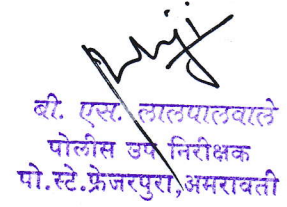 बी. एस. लालपालवाले
पोलीस उप निरीक्षक
पो.स्टे.फ्रेजरपुरा,अमरावती